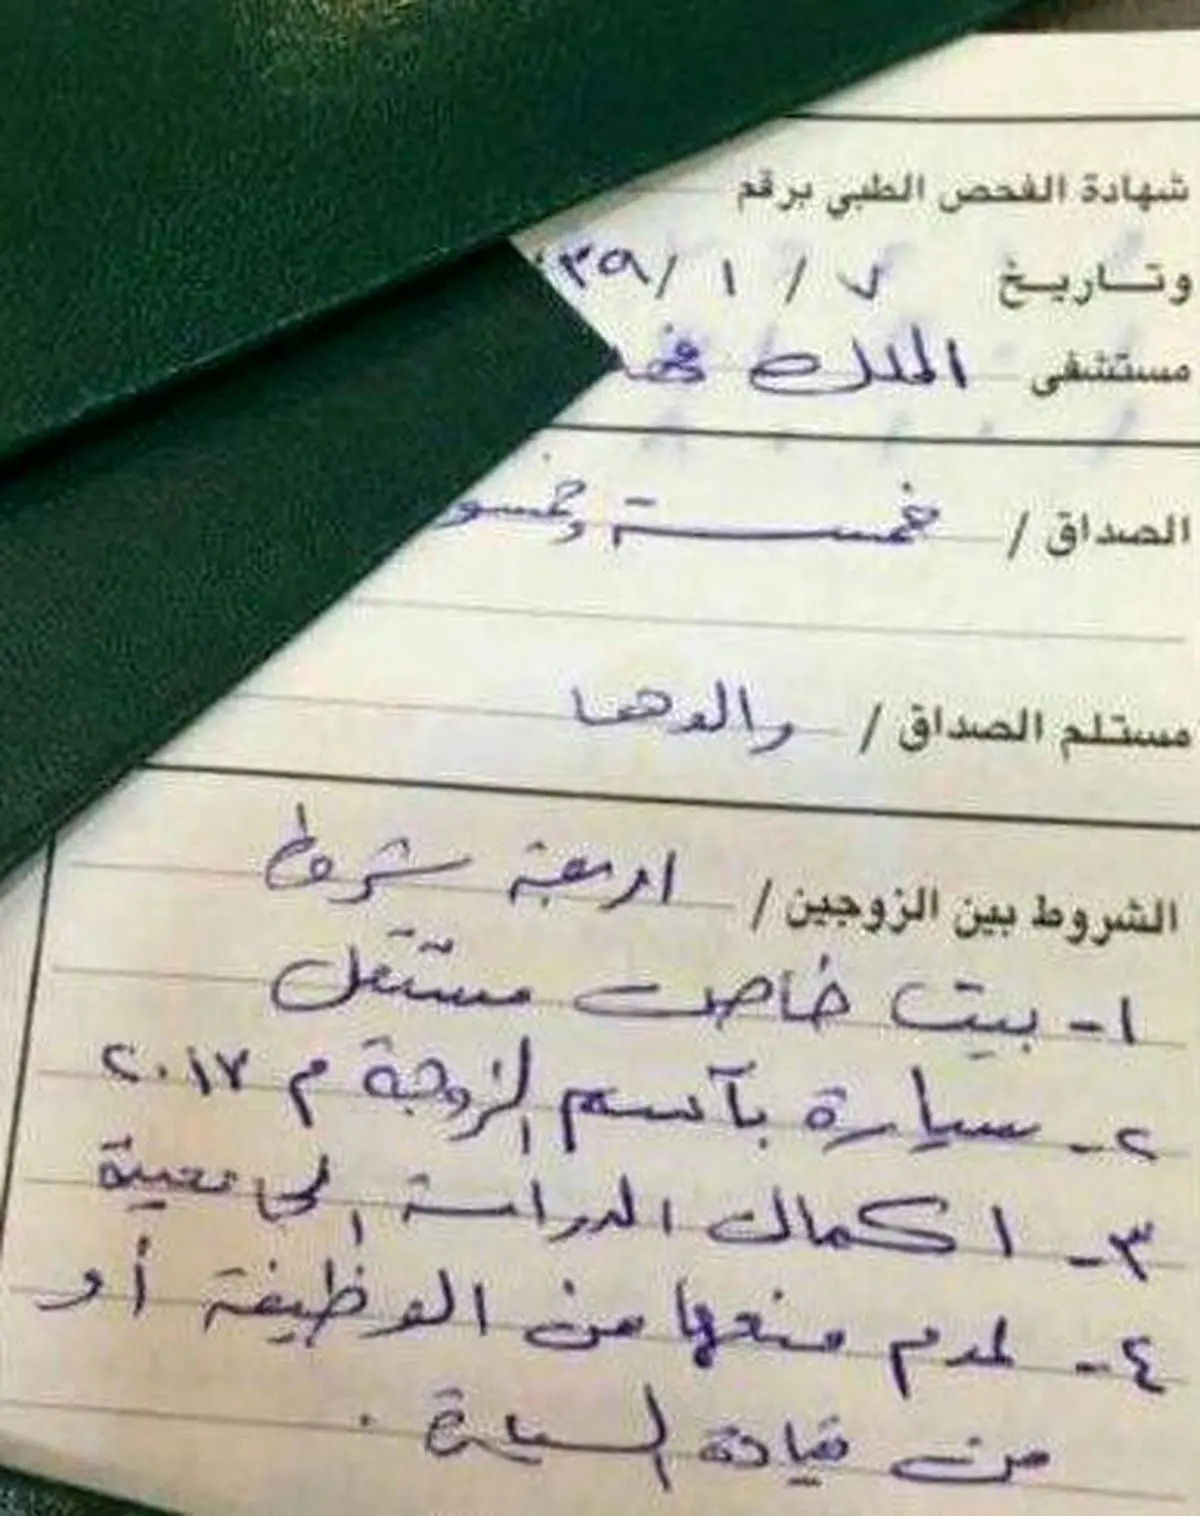 شهادة الفحص الطبي برقم
وتاريخ ٧ / ١ / ٣٩
مستشفى الملك فهد
الصداق / خمسة وخمسو
مستلم الصداق / والدها
الشروط بين الزوجين / اربعة شروط
١- بيت خاص مستقل
٢- سيارة بآسم الزوجة م ٢٠١٧
٣- اكمال الدراسة الجامعية
٤- لعدم منعها من الوظيفة أو
من قيادة السيارة .